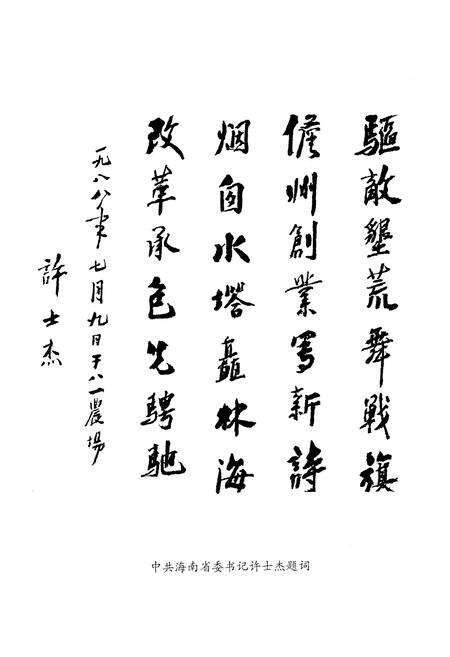 驅敵墾荒舞戰旗
儋州創業寫新詩
烟囱水塔矗林海
改革承包先騁馳
一九八八年七月九日于八一農場
許士杰
中共海南省委书记许士杰题词